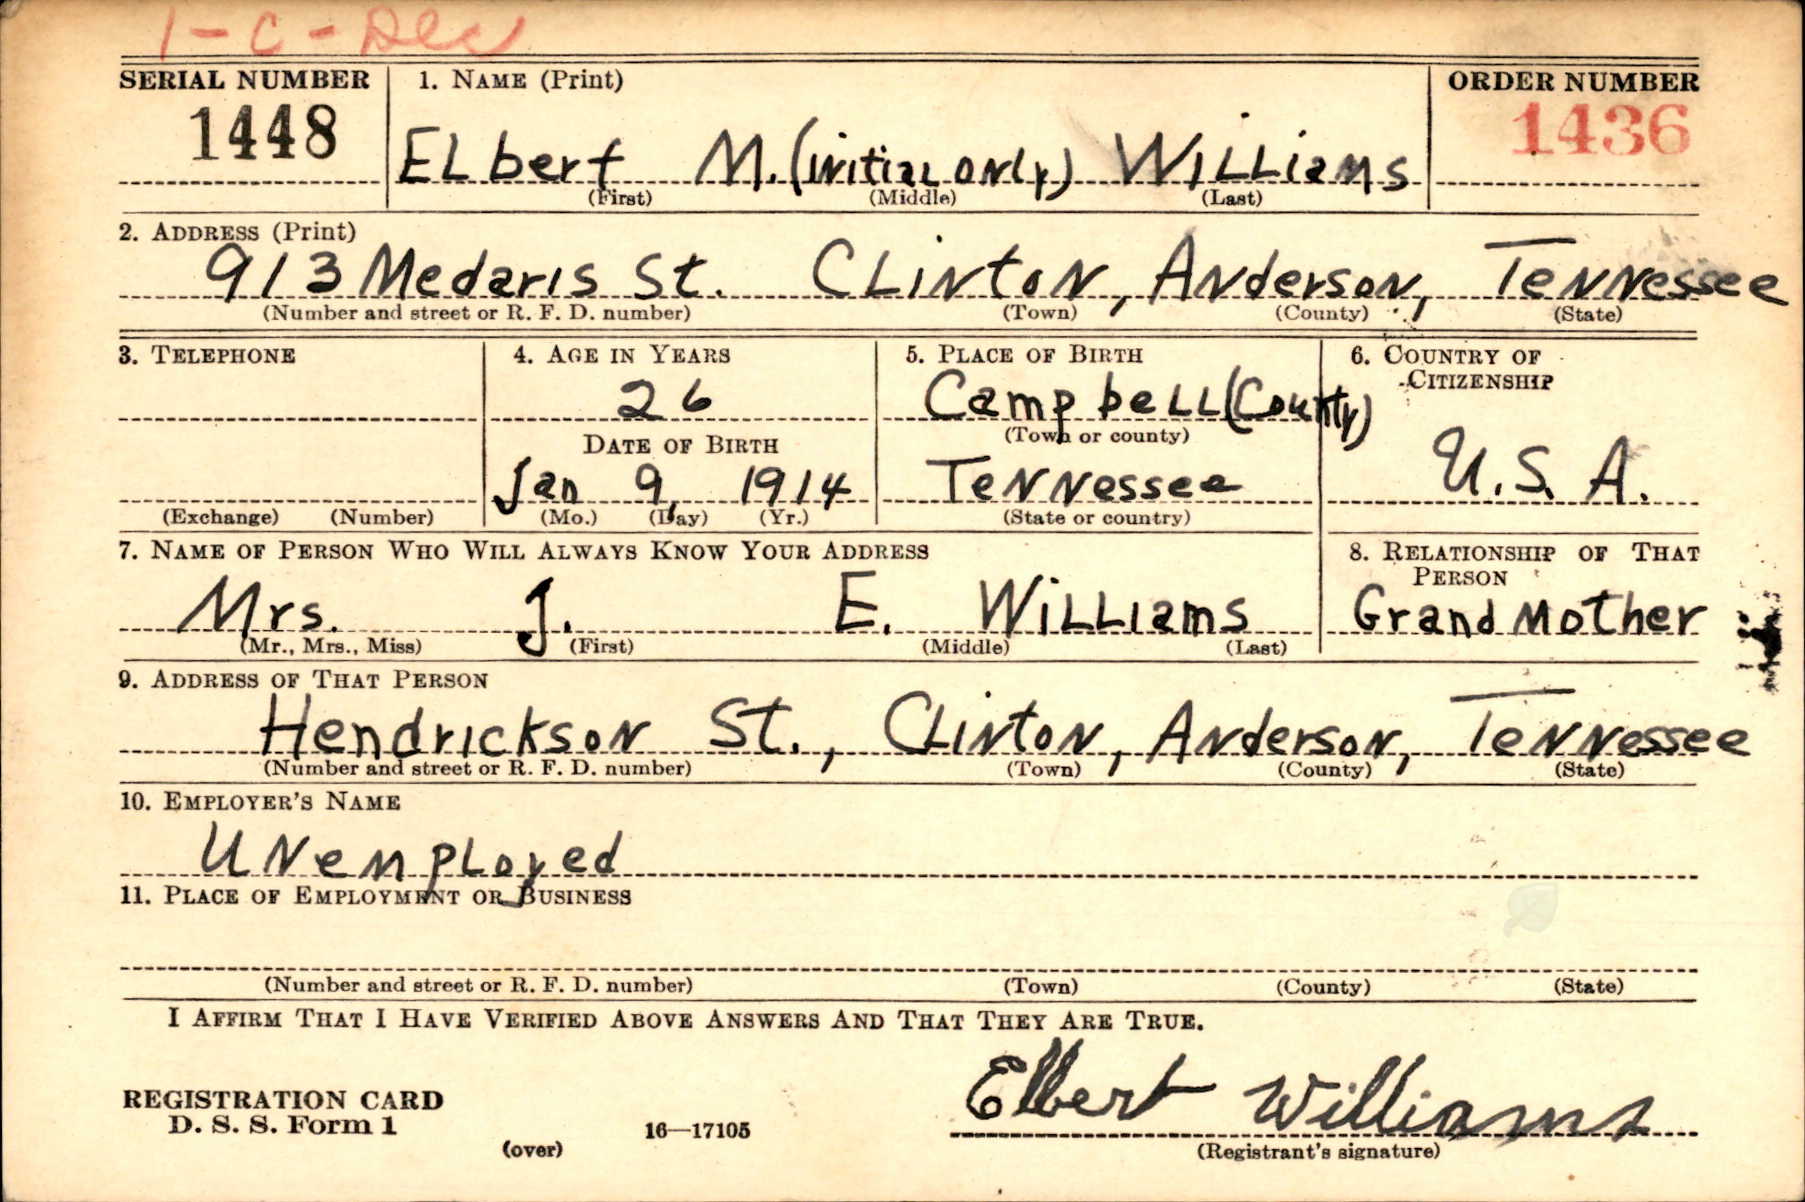 1-C-Dec
SERIAL NUMBER 1. NAME (Print) ORDER NUMBER
1448 1436
ELbert M. (initial only) WiLLiams
(First) (Middle) (Last)
2. ADDRESS (Print)
913 Medaris St. CLinton, Anderson, Tennessee
(Number and street or R. F. D. number) (Town) (County) (State)
3. TELEPHONE 4. AGE IN YEARS 5. PLACE OF BIRTH 6. COUNTRY OF
CITIZENSHIP
26 CampbeLL (County)
DATE OF BIRTH (Town or county)
Jan 9, 1914 Tennessee U.S.A.
(Exchange) (Number) (Mo.) (Day) (Yr.) (State or country)
7. NAME OF PERSON WHO WILL ALWAYS KNOW YOUR ADDRESS 8. RELATIONSHIP OF THAT
PERSON
Mrs. J. E. WiLLiams GrandMother
(Mr., Mrs., Miss) (First) (Middle) (Last)
9. ADDRESS OF THAT PERSON
Hendrickson St., CLinton, Anderson, Tennessee
(Number and street or R. F. D. number) (Town) (County) (State)
10. EMPLOYER'S NAME
UNempLoyed
11. PLACE OF EMPLOYMENT OR BUSINESS
(Number and street or R. F. D. number) (Town) (County) (State)
I AFFIRM THAT I HAVE VERIFIED ABOVE ANSWERS AND THAT THEY ARE TRUE.
Elbert Williams
REGISTRATION CARD
D. S. S. Form 1 16—17105
(over) (Registrant's signature)